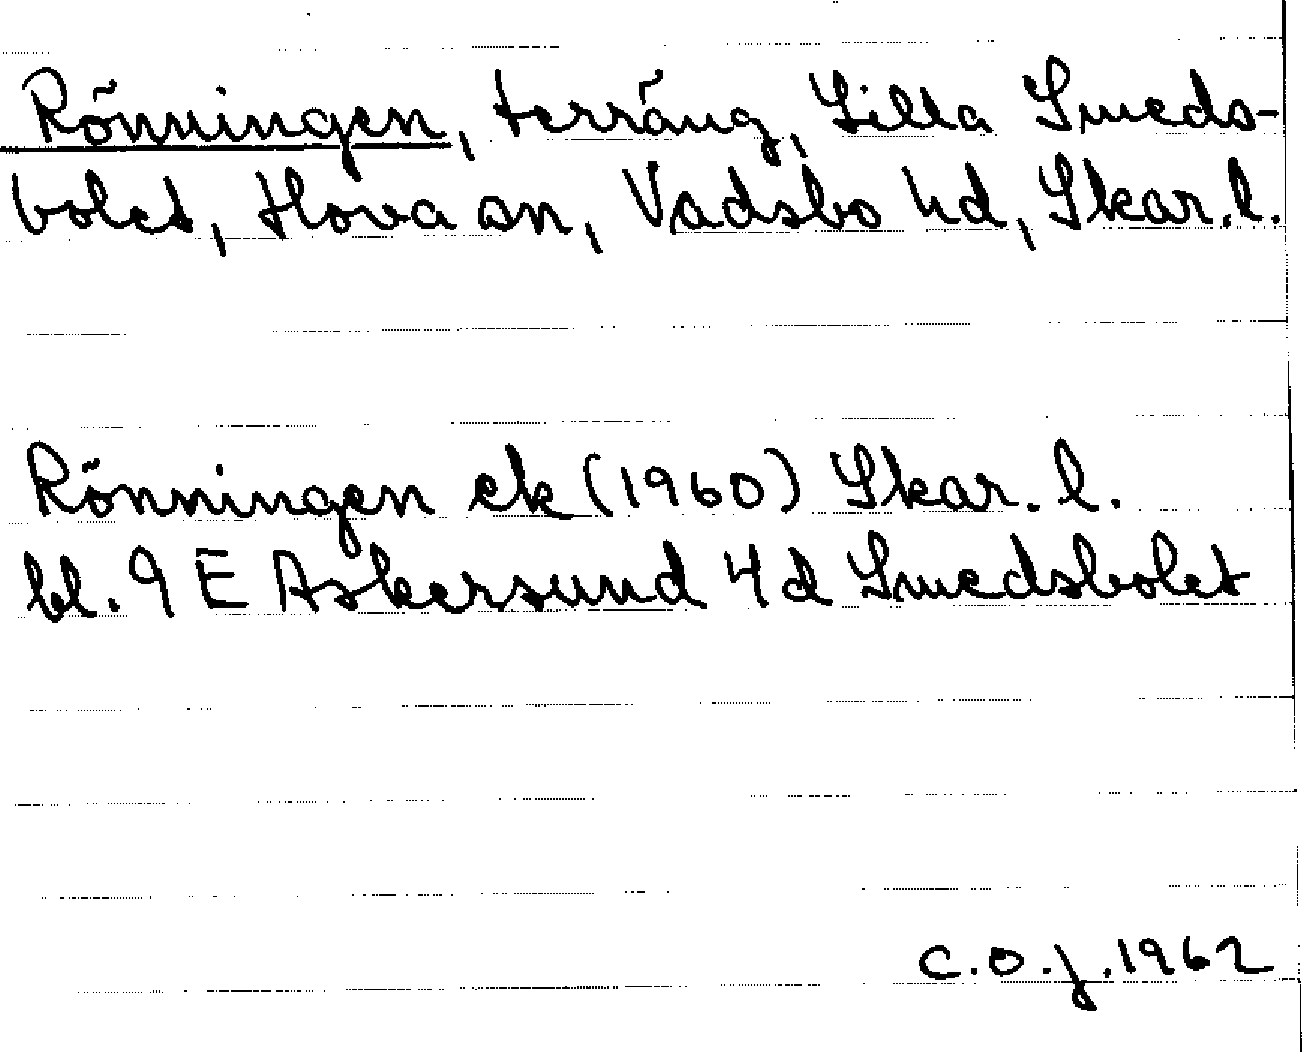 Rönningen, terräng, Lilla Smeds-
bolet, Hova sn, Vadsbo hd, Skar. l.
Rönningen ek (1960) Skar. l.
bl. 9 E Askersund 4d Smedsbolet
C.O.J. 1962